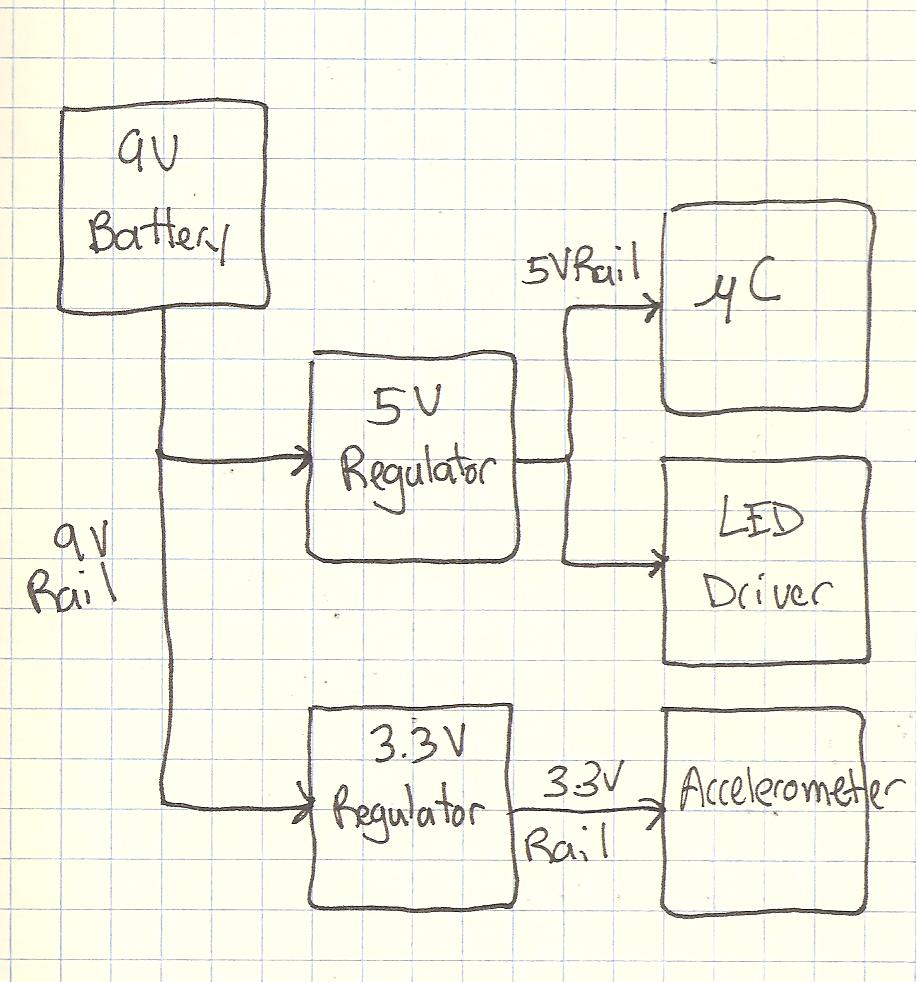 9V
Battery
5V Rail
μC
5V
Regulator
LED
Driver
9V
Rail
3.3V
Regulator
3.3V
Rail
Accelerometer